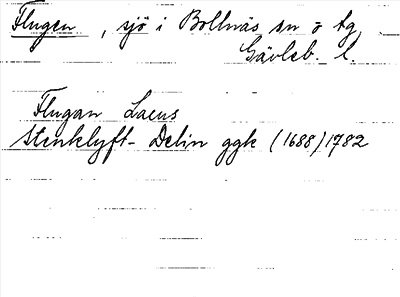 Flugen, sjö i Bollnäs sn o tg,
Gävleb. l.
Flugan Lacus
Stenklyft- Delin ggk (1688) 1782